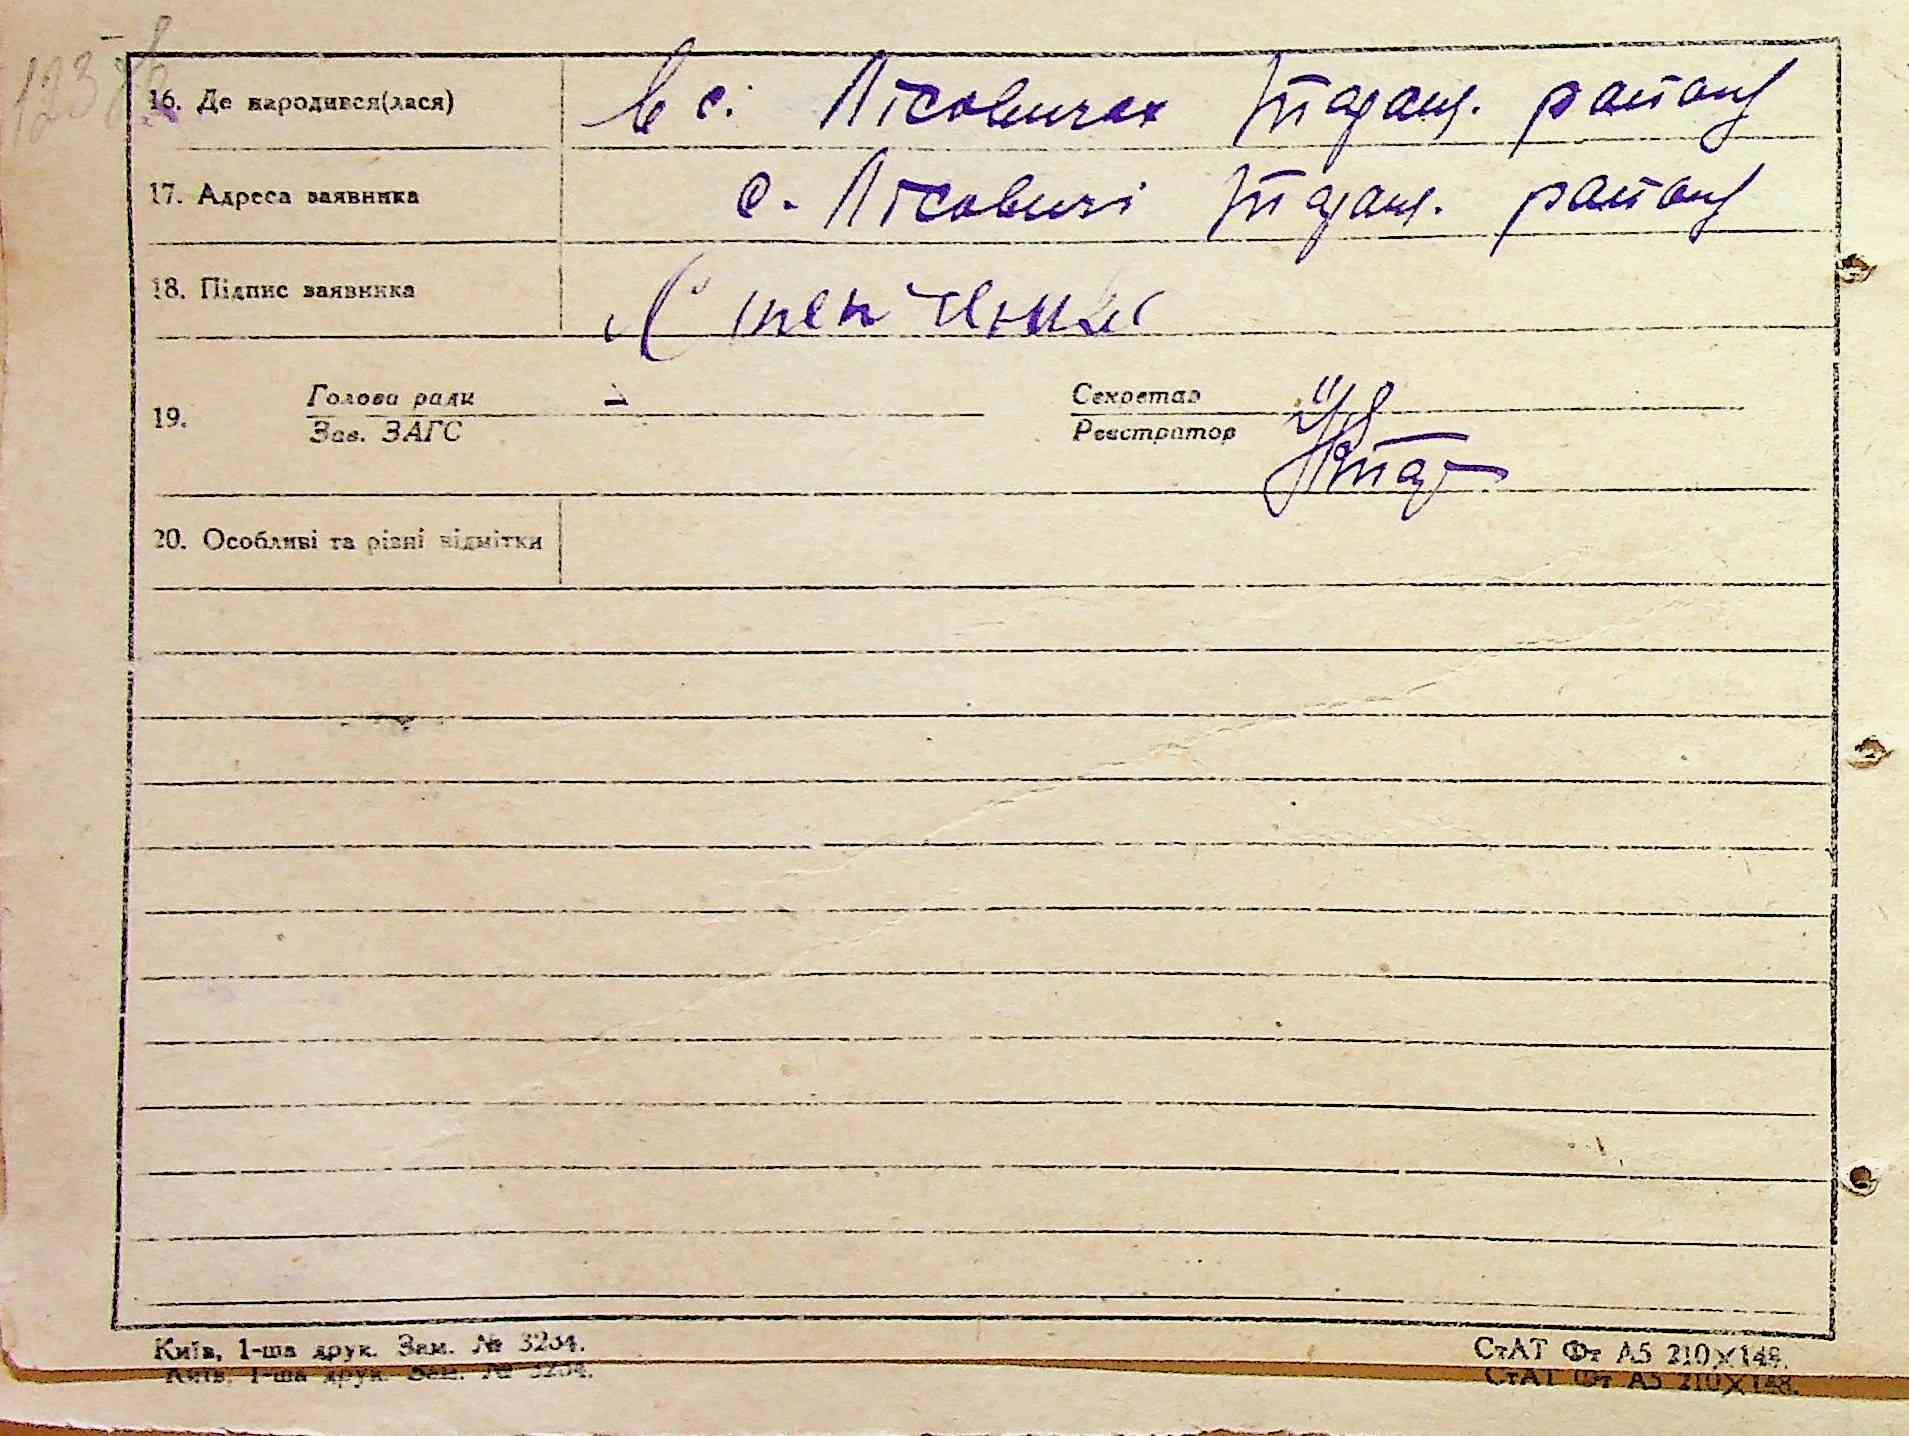 16. Де народився(лася) в с. Лісовичах Таращ. району
17. Адреса заявника с. Лісовичі Таращ. району
18. Підпис заявника
19. Голова ради Секретар
Зав. ЗАГС Реєстратор
20. Особливі та різні відмітки
Київ, 1-ша друк. Зам. № 3234. СтАТ Фт А5 210×148.
Київ, 1-ша друк. Зам. № 3234. СтАТ Фт А5 210×148.